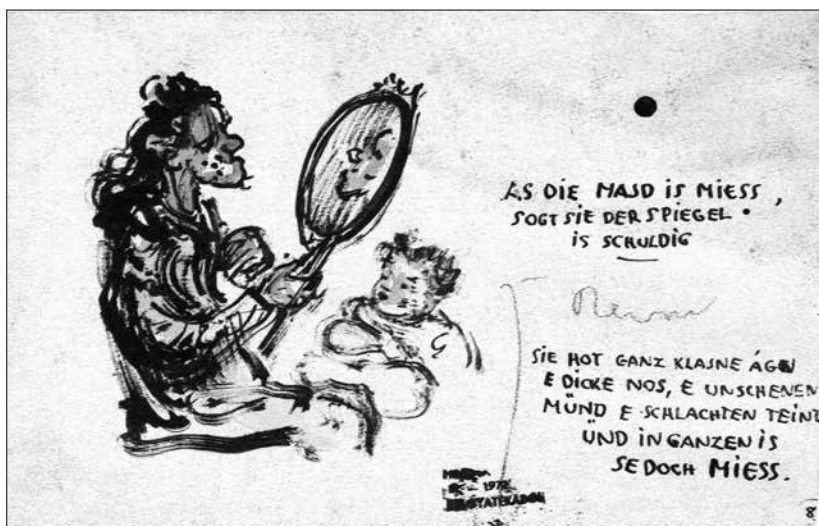 AS DIE MAJD IS MIESS,
SOGT SIE DER SPIEGEL
IS SCHULDIG
SIE HOT GANZ KLAJNE ÁGN
E DICKE NOS, E UNSCHENEN
MÜND E SCHLACHTEN TEINT
ÜND IN GANZEN IS
SE DOCH MIESS.
1972
8